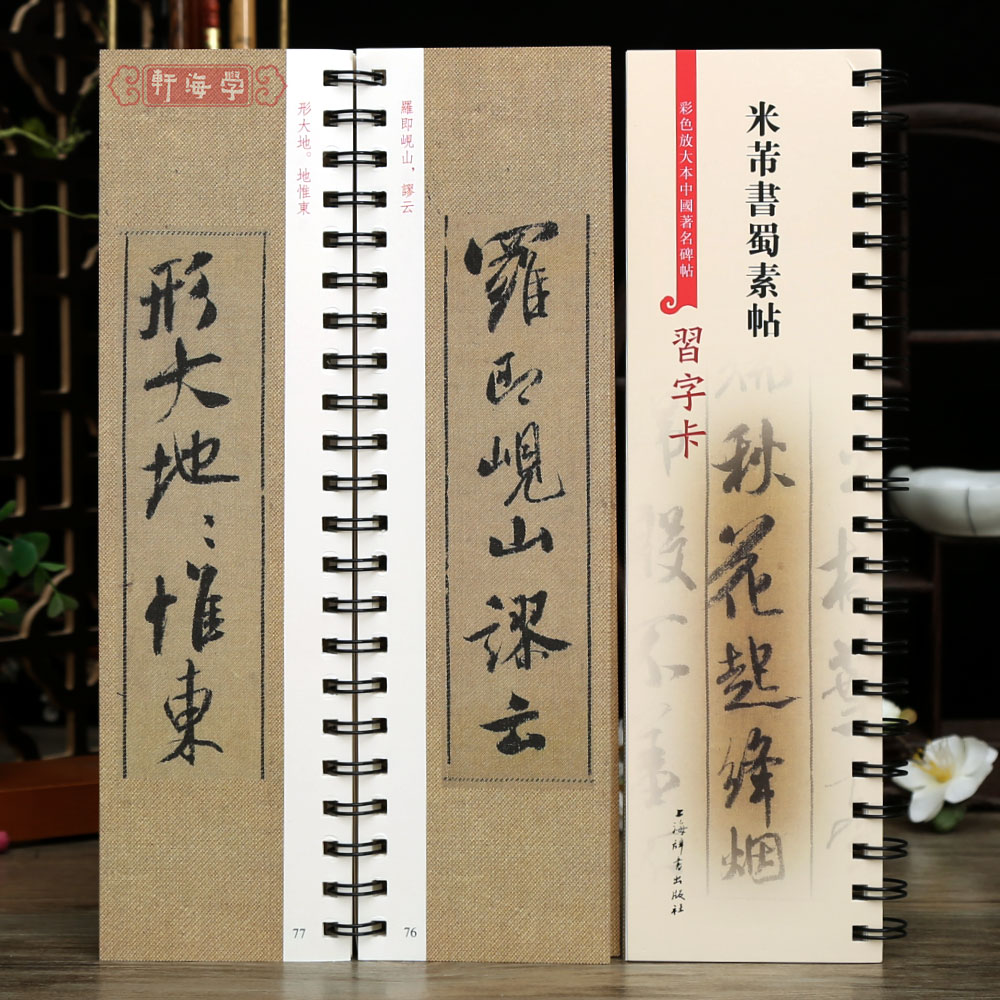 學海軒
米芾書蜀素帖
彩色放大本中國著名碑帖
習字卡
秋花起絳烟
上海辞书出版社
羅即峴山謬云
羅即峴山，謬云
76
形大地。地惟東
形大地〻惟東
77